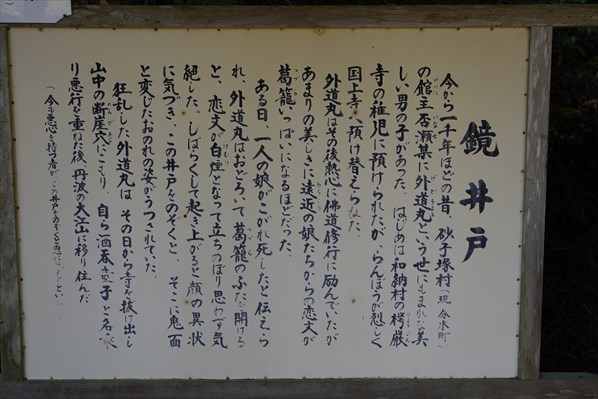 鏡井戸
今から一千年ほどの昔、砂子塚村(現 分水町)
の館主否瀬某に外道丸という世にもまれな美
しい男の子があった。はじめは和納村の楞厳
寺の稚児に預けられたが、らんぼうが烈しく
国上寺へ預け替えられた。
外道丸はその後熱心に佛道修行に励んでいたが
あまりの美しさに遠近の娘たちからの恋文が
葛籠いっぱいになるほどだった。
ある日、一人の娘がこがれ死したと伝えら
れ、外道丸はおどろいて葛籠のふたを開ける
と、恋文が白煙となって立ちのぼり思わず気
絶した。しばらくして起き上がると顔の異状
に気づき、この井戸をのぞくと、そこに鬼面
と変じたおのれの姿がうつされていた。
狂乱した外道丸は その日から寺を抜け出し
山中の断崖穴にこもり、自ら酒吞童子と名
り悪行を重ねた後、丹波の大江山に移り住んだ
(今も悪心を持つ者が、この井戸をのぞくと